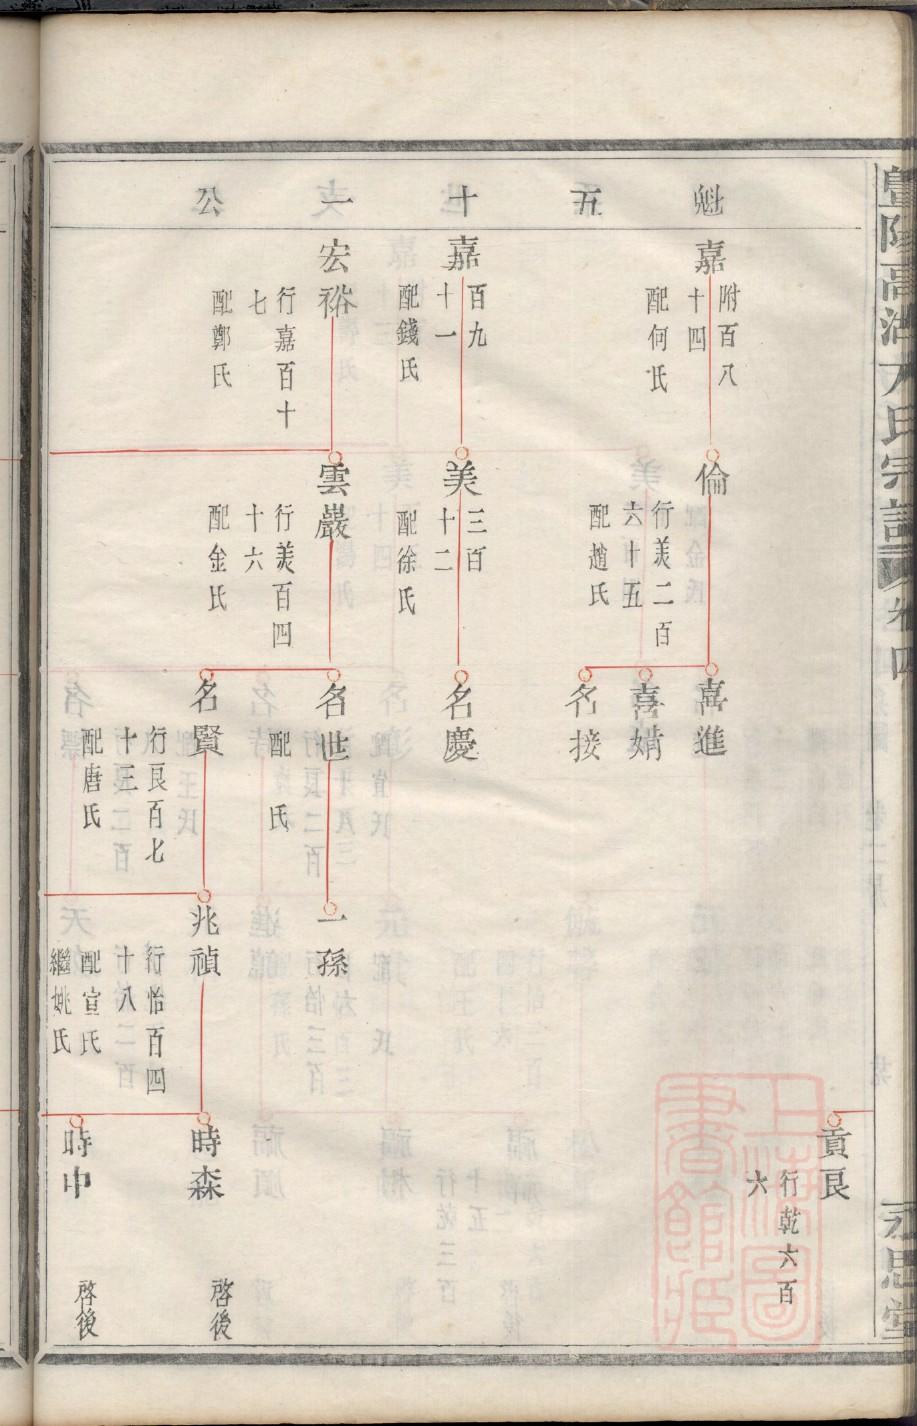 暨陽高湖方氏宗譜 卷四
永思堂
魁五十一公
貢良
行乾六百
六
嘉
附百八
十四
配何氏
倫
行美二百
六十五
配趙氏
喜進
喜婧
名接
嘉
百九
十一
配錢氏
美
三百
十二
配徐氏
名慶
宏裕
行嘉百十
七
配鄭氏
雲巖
行美百四
十六
配金氏
名世
配 氏
一孫
名賢
行良百七
十三
配唐氏
兆禎
行怡百四
十八
配宣氏
繼姚氏
時森
啓後
時中
啓後
上海圖書館藏